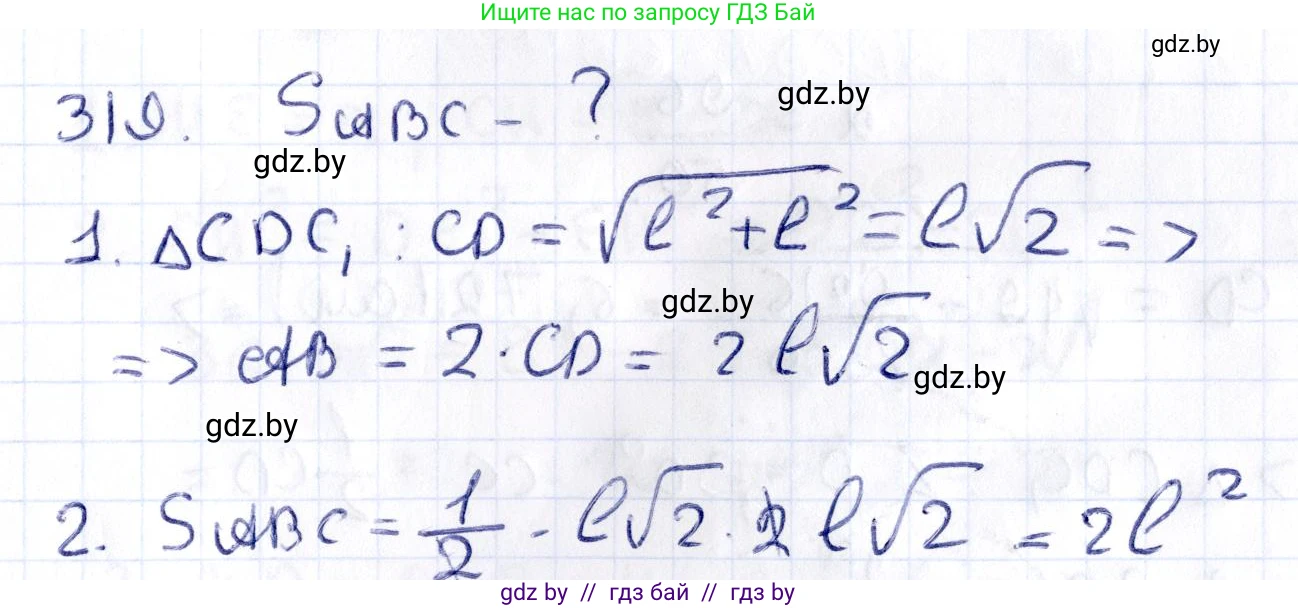 Ищите нас по запросу ГДЗ Бай
gdz.by
319. SABC - ?
gdz.by
gdz.by
1. ΔCDC₁ : CD = √(l²+l²) = l√2 =>
gdz.by
=> AB = 2·CD = 2l√2
gdz.by
gdz.by
2. SABC = 1/2 · l√2 · 2l√2 = 2l²
gdz.by // гдз бай // гдз by